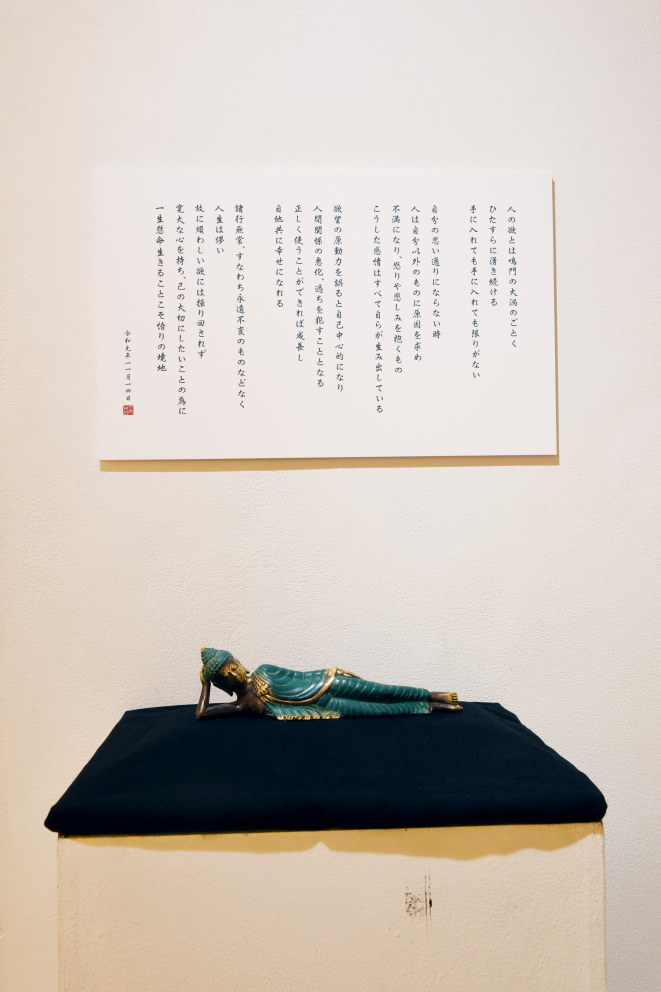 人の欲とは鳴門の大渦のごとく
ひたすらに湧き続ける
手に入れても手に入れても限りがない
自分の思い通りにならない時
人は自分以外のものに原因を求め
不満になり、怒りや悲しみを抱くもの
こうした感情はすべて自らが生み出している
欲望の原動力を誤ると自己中心的になり
人間関係の悪化、過ちを犯すこととなる
正しく使うことができれば成長し
自他共に幸せになれる
諸行無常、すなわち永遠不変のものなどなく
人生は儚い
故に煩わしい欲には振り回されず
寛大な心を持ち、己の大切にしたいことの為に
一生懸命生きることこそ悟りの境地
令和元年一一月一四日